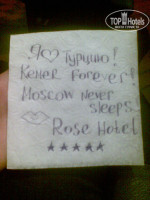 TOP Hotels
Я ♡ Турцию!
Кемер forever!
Moscow never
sleeps
Rose Hotel
★★★★★